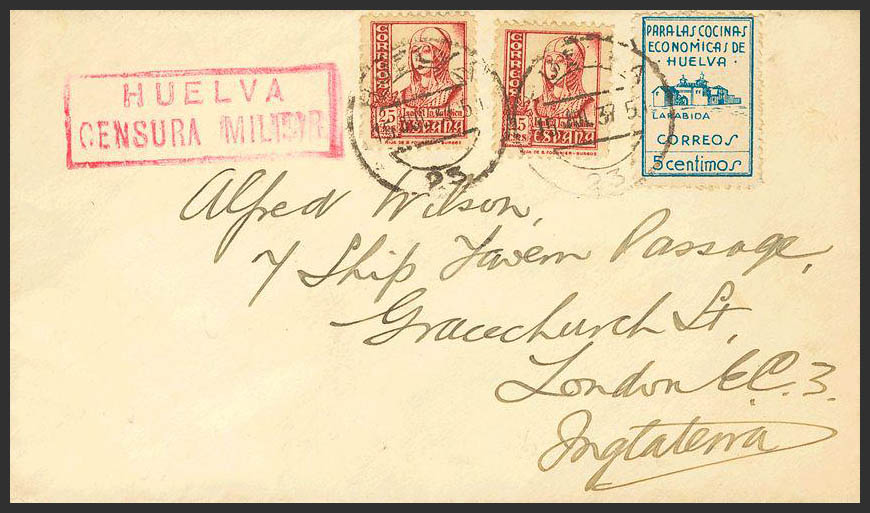 HUELVA
CENSURA MILITAR
CORREOS
25
CTS
Isabel la Católica
ESPAÑA
HIJA DE B. FOURNIER-BURGOS
CORREOS
25
CTS
ESPAÑA
HIJA DE B. FOURNIER-BURGOS
HUELVA
37 5
23
PARA LAS COCINAS
ECONOMICAS DE
HUELVA
LARABIDA
CORREOS
5 centimos
Alfred Wilson,
7 Ship Tavern Passage,
Gracechurch St,
London E.C. 3.
Inglaterra